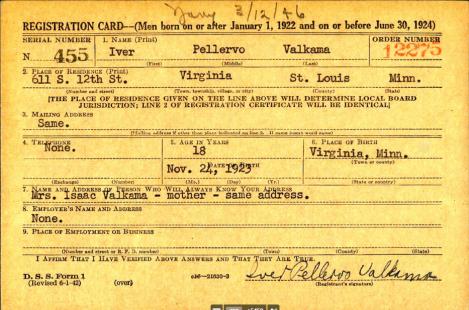 Navy 3/12/46
REGISTRATION CARD—(Men born on or after January 1, 1922 and on or before June 30, 1924)
SERIAL NUMBER 1. NAME (Print) ORDER NUMBER
N 455 Iver Pellervo Valkama 12275
(First) (Middle) (Last)
2. PLACE OF RESIDENCE (Print)
611 S. 12th St. Virginia St. Louis Minn.
(Number and street) (Town, township, village, or city) (County) (State)
[THE PLACE OF RESIDENCE GIVEN ON THE LINE ABOVE WILL DETERMINE LOCAL BOARD
JURISDICTION; LINE 2 OF REGISTRATION CERTIFICATE WILL BE IDENTICAL]
3. MAILING ADDRESS
Same.
[Mailing address if other than place indicated on line 2. If same insert word same]
4. TELEPHONE 5. AGE IN YEARS 6. PLACE OF BIRTH
None. 18 Virginia, Minn.
(Town or county)
DATE OF BIRTH
Nov. 24, 1923
(Exchange) (Number) (Mo.) (Day) (Yr.) (State or country)
7. NAME AND ADDRESS OF PERSON WHO WILL ALWAYS KNOW YOUR ADDRESS
Mrs. Isaac Valkama - mother - same address.
8. EMPLOYER'S NAME AND ADDRESS
None.
9. PLACE OF EMPLOYMENT OR BUSINESS
(Number and street or R. F. D. number) (Town) (County) (State)
I AFFIRM THAT I HAVE VERIFIED ABOVE ANSWERS AND THAT THEY ARE TRUE.
D. S. S. Form 1
(Revised 6-1-42) (over) c16—21630-2 Iver Pellervo Valkama
(Registrant's signature)